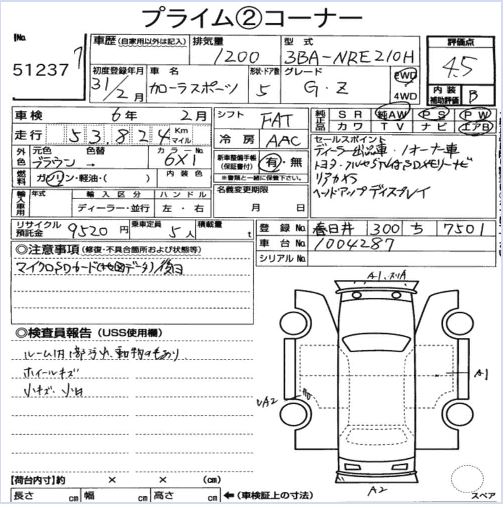 プライム②コーナー
No. 51237
車歴 (自家用以外は記入)
排気量 1200
型式 3BA-NRE210H
評価点 4.5
初度登録年月 31/2月
車名 カローラスポーツ
形状・ドア数 5
グレード G・Z
2WD 4WD
内装補助評価 B
車検 6年 2月
シフト FAT
純正品 SR 純AW PS PW
カワ TV ナビ エアB
走行 53,824 Km マイル
冷房 AAC
セールスポイント
ディーラー出品車・1オーナー車
リアカメラ
ヘッドアップディスプレイ
外色 元色 ブラウン → 色替 カラーNo. 6X1
新車整備手帳(保証書付) 有・無
※書類と一緒に保管下さい。
燃料 ガソリン・軽油・( ) 内装色
名義変更期限 月 日
輸入車用 年式 輸入区分 ハンドル
ディーラー・並行 左・右
リサイクル預託金 9520円 乗車定員 5人 積載量 t
登録No. 春日井 300 ち 7501
車台No. 1004287
シリアルNo.
◎注意事項 (修復・不具合箇所および状態等)
マイクロSDカード(地図データ)後日
◎検査員報告 (USS使用欄)
ルーム内1部汚れ 動物毛あり
ホイールキズ
小キズ 小凹
A1
A1
UA2
A2
【荷台内寸】約 × × (cm)
長さ cm 幅 cm 高さ cm ←(車検証上の寸法)
スペア